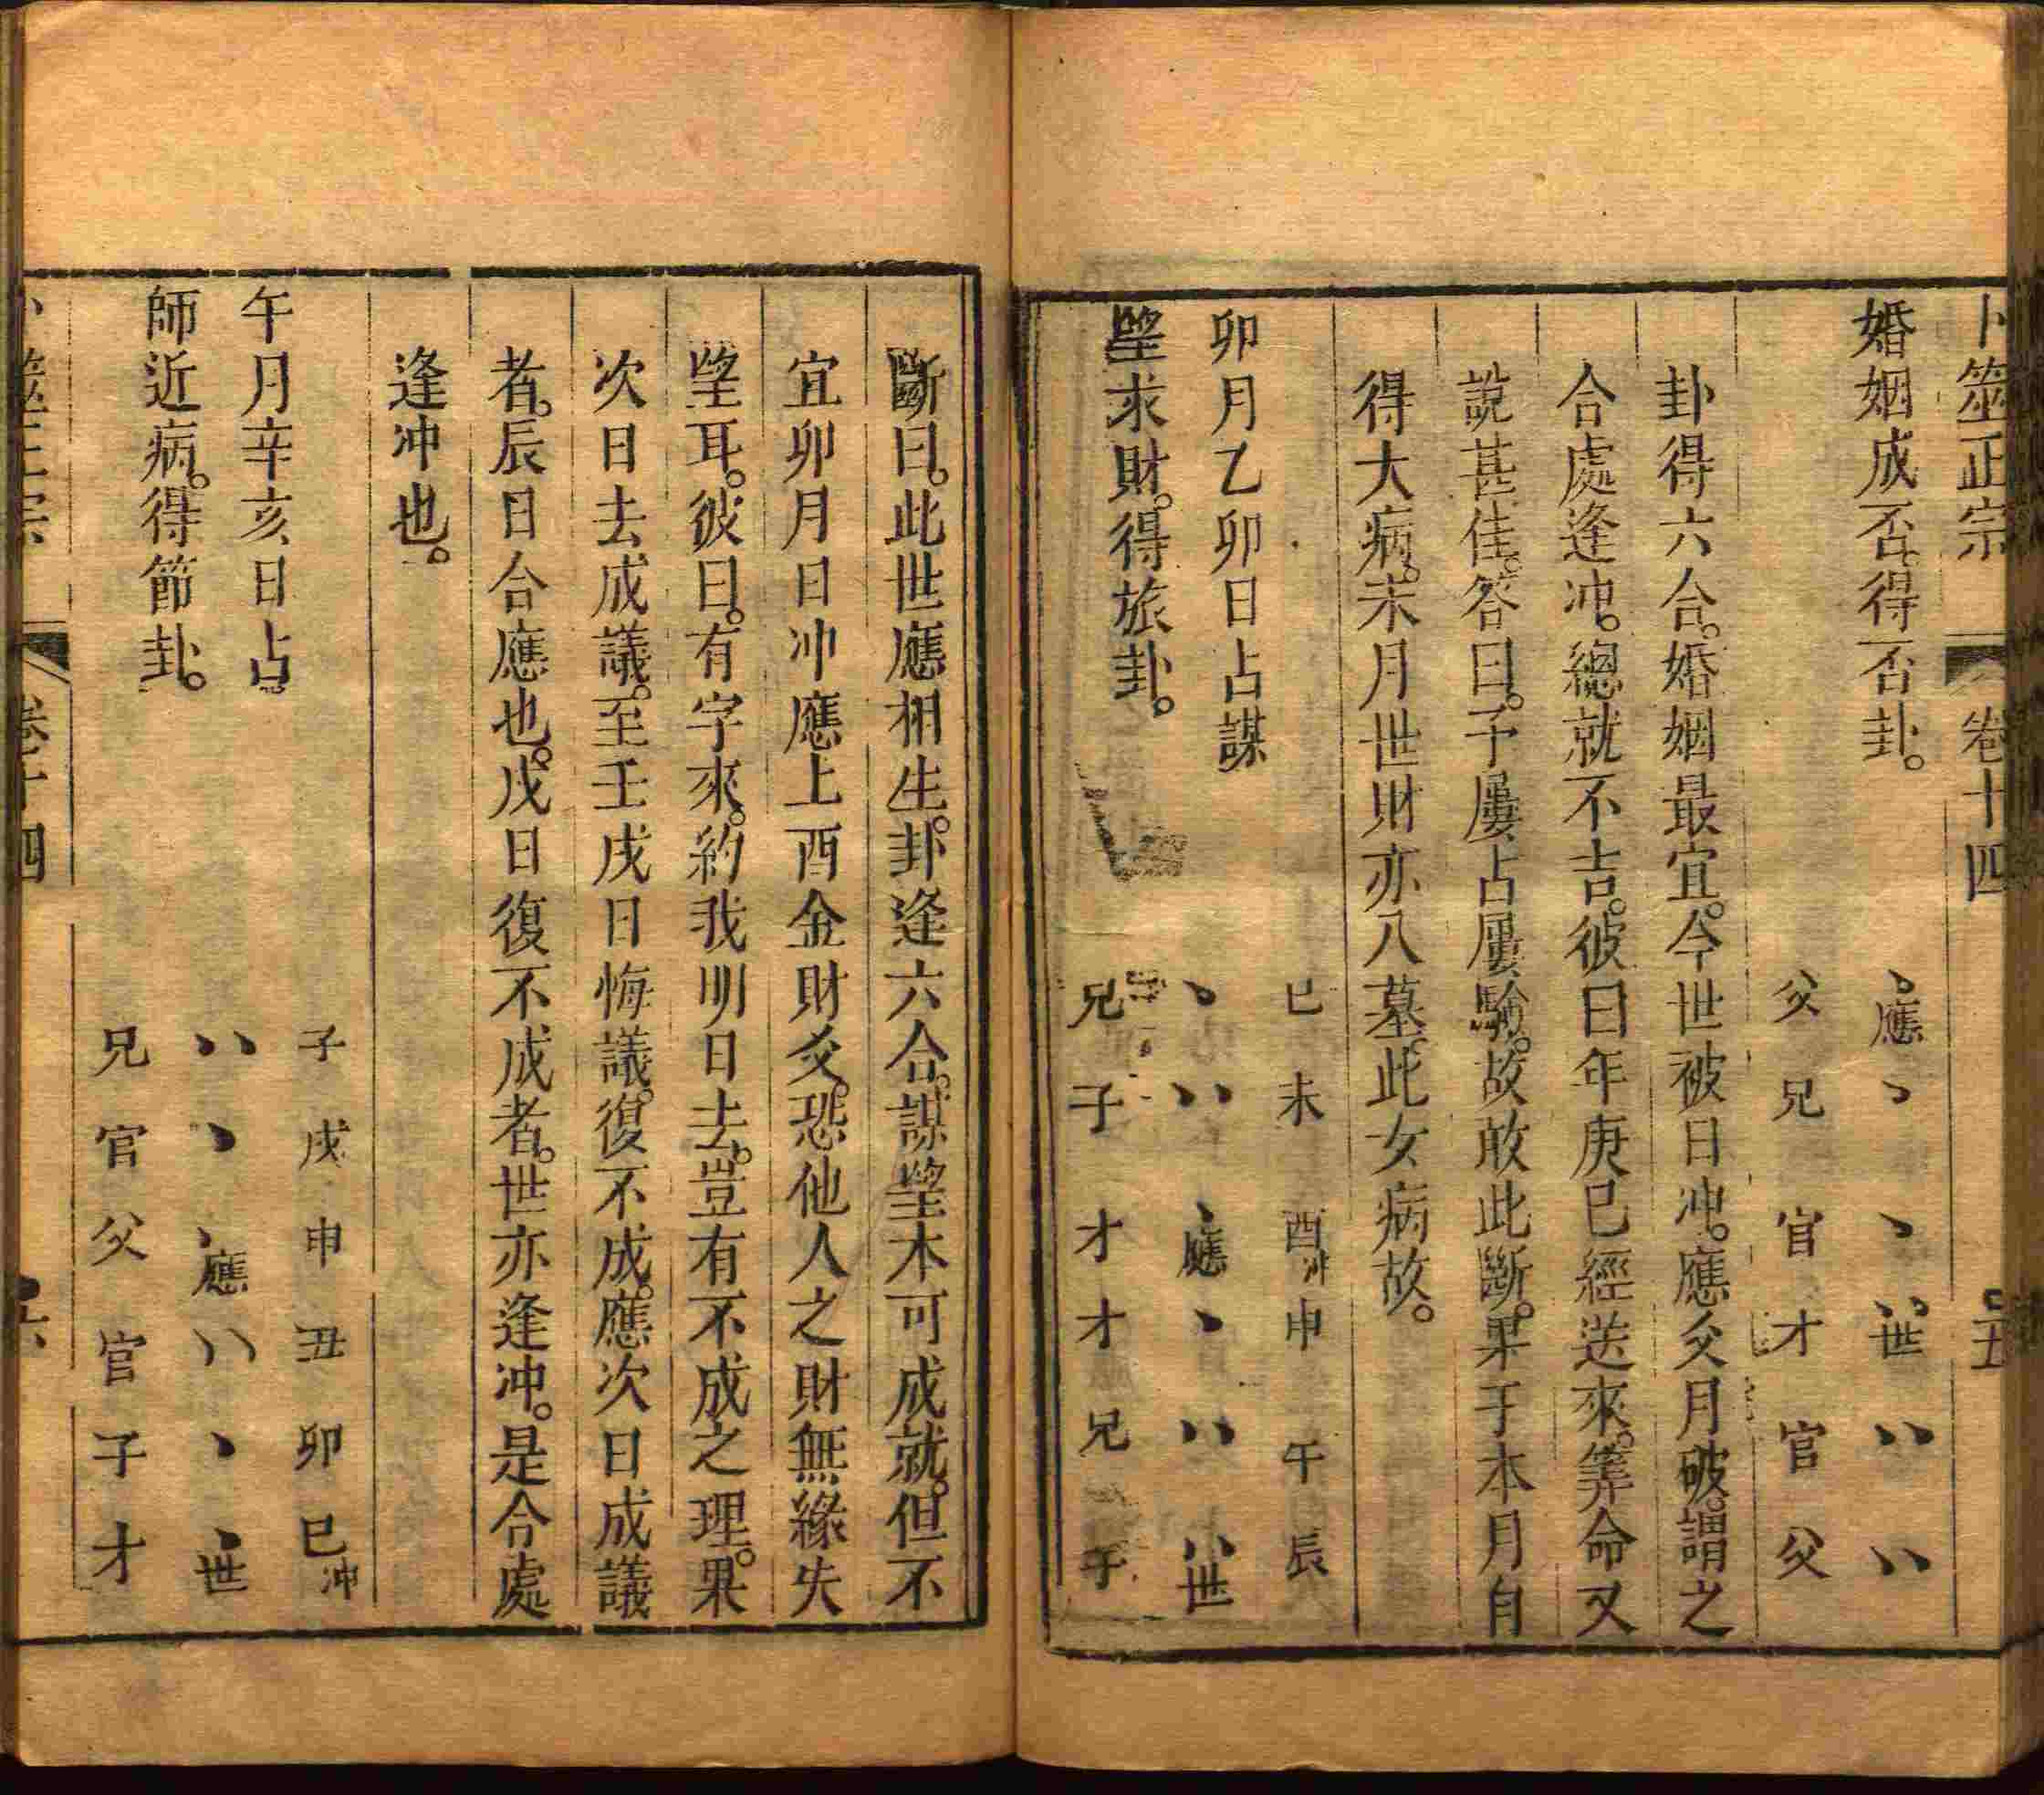 卜筮正宗 卷十四 五
婚姻成否。得否卦。
應 世
父兄官才官父
卦得六合。婚姻最宜。今世被日冲。應爻月破。謂之
合處逢冲。總就不吉。彼曰年庚已經送來。筭命又
說甚佳。答曰。予屢占屢驗。故敢此斷。果于本月自
得大病。未月世財亦入墓。此女病故。
卯月乙卯日占謀
巳未酉冲申午辰
應 世
望求財。得旅卦。
兄子才才兄子
斷曰。此世應相生。卦逢六合。謀望本可成就。但不
宜卯月日冲應上酉金財爻。恐他人之財無緣失
望耳。彼曰。有字來。約我明日去。豈有不成之理。果
次日去成議。至壬戌日悔議。復不成。應次日成議
者。辰日合應也。戌日復不成者。世亦逢冲。是合處
逢冲也。
子戌申丑卯巳冲
午月辛亥日占
應 世
師近病。得節卦。
兄官父官子才